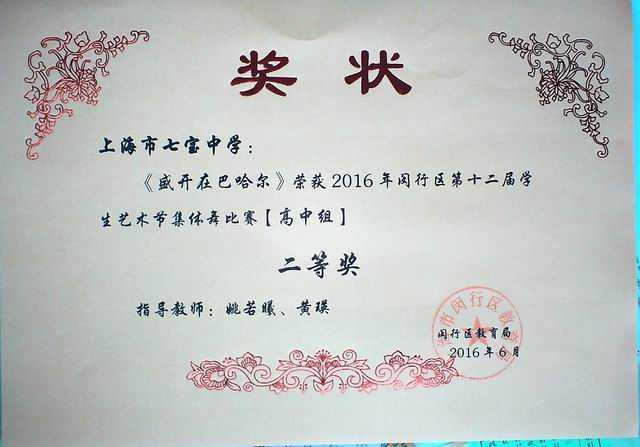 奖 状
上海市七宝中学：
《盛开在巴哈尔》荣获2016年闵行区第十二届学
生艺术节集体舞比赛【高中组】
二等奖
指导教师：姚若曦、黄瑛
闵行区教育局
2016年6月